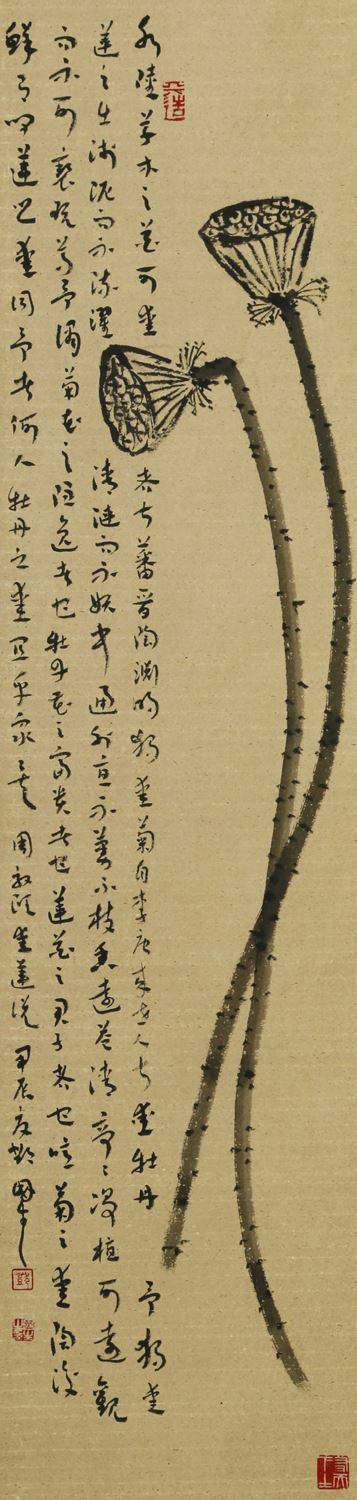 水陸草木之花可愛者甚蕃晉陶淵明獨愛菊自李唐來世人甚愛牡丹予獨愛
蓮之出淤泥而不染濯清漣而不妖中通外直不蔓不枝香遠益清亭亭凈植可遠觀
而不可褻玩焉予謂菊花之隱逸者也牡丹花之富貴者也蓮花之君子者也噫菊之愛陶後
鮮有聞蓮之愛同予者何人牡丹之愛宜乎眾矣 周敦頤愛蓮說 甲辰